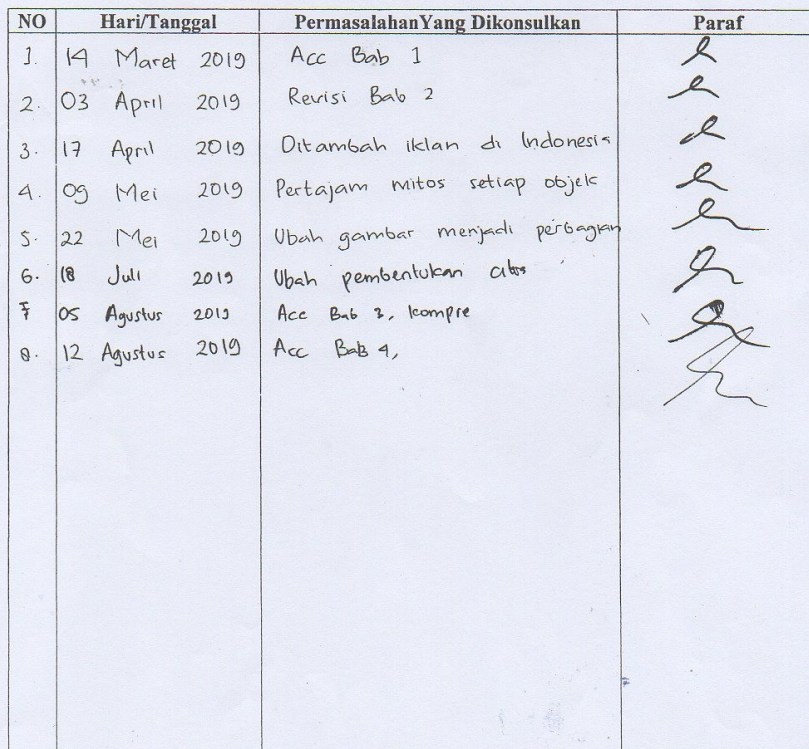 NO Hari/Tanggal PermasalahanYang Dikonsulkan Paraf
1. 14 Maret 2019 Acc Bab 1
2. 03 April 2019 Revisi Bab 2
3. 17 April 2019 Ditambah iklan di Indonesia
4. 09 Mei 2019 Pertajam mitos setiap objek
5. 22 Mei 2019 Ubah gambar menjadi perbagian
6. 18 Juli 2019 Ubah pembentukan
7 05 Agustus 2019 Acc Bab 3, kompre
8. 12 Agustus 2019 Acc Bab 4,